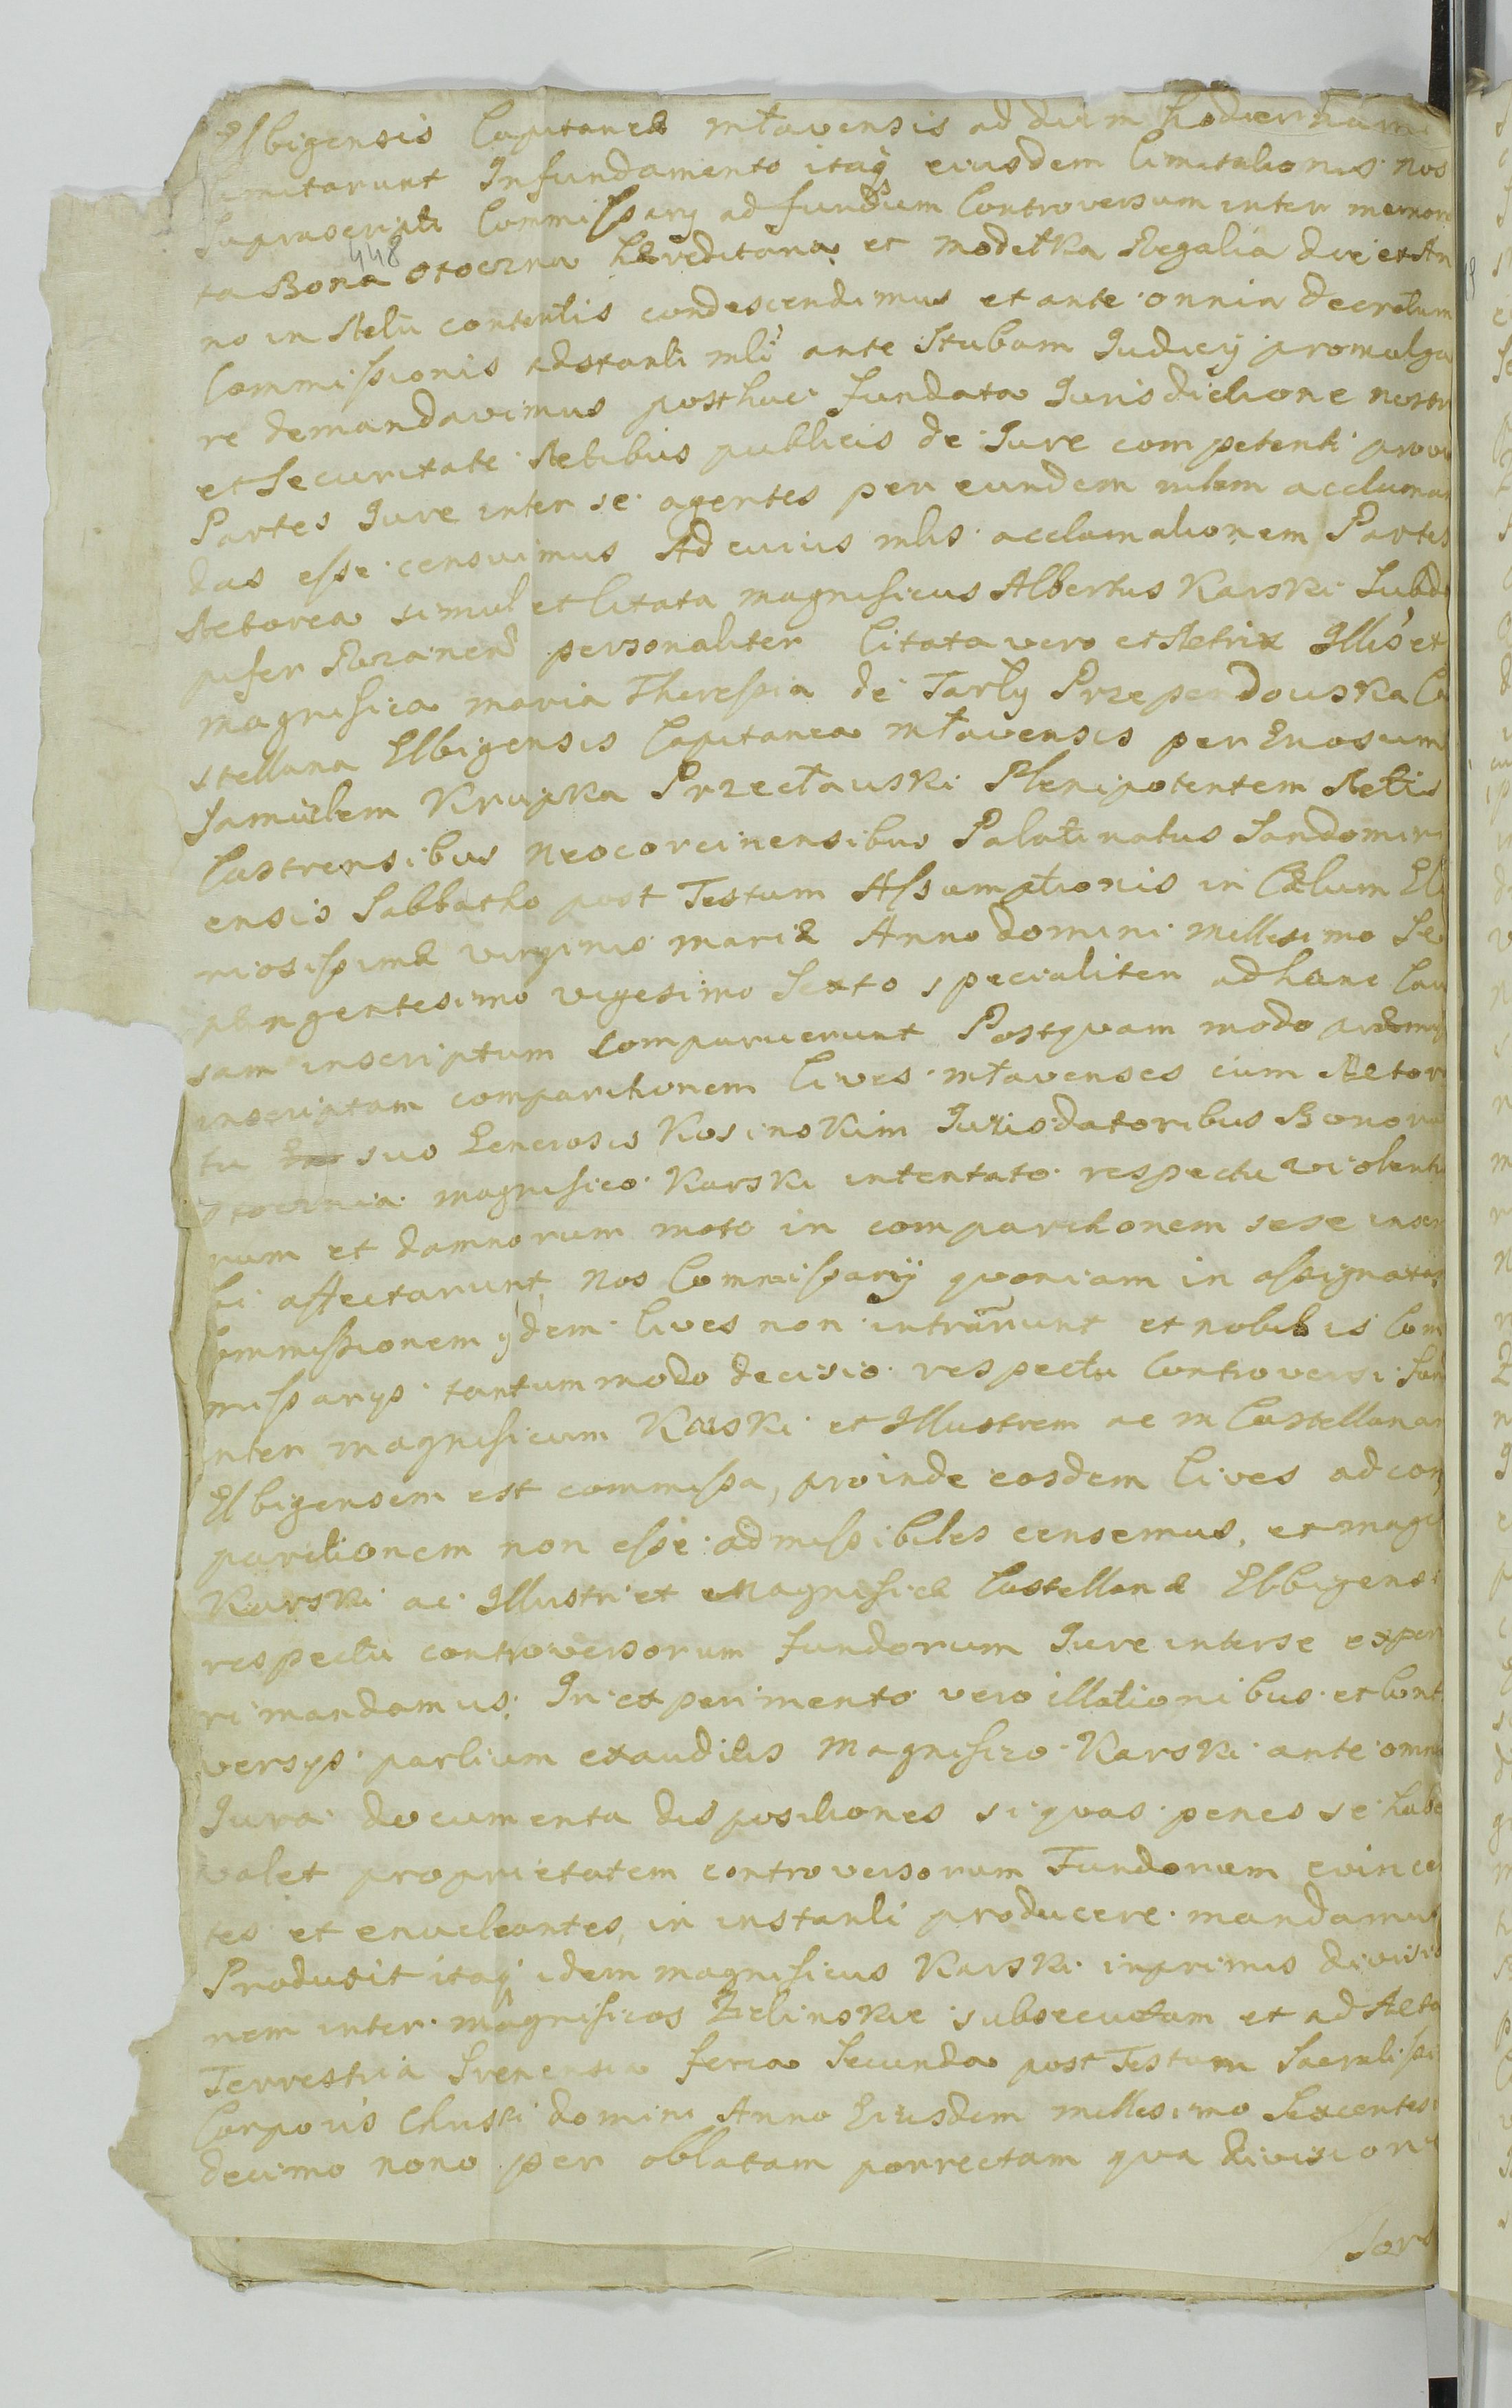 Elbigensis Capitaneæ młavensis ad diem hodiernam
limitarunt In fundamento itaq eiusdem limitationis nos
suprascripti Commissarij ad fundum Controversum inter memora
448
ta Bona otocznia hæreditaria et modełka Regalia die et An
no in Actu contentis condescendimus et ante omnia decretum
Commissionis adstanti mli ante Stubam Iudicij promulga
re demandavimus posthæc fundata Iurisdictione nostr
et Securitate Actibus publicis de Iure competenti
Partes Iure inter se agentes per eundem mlem acclaman
das esse censuimus Ad cuius mlis acclamationem Partes
Actorea simul et Citata magnificus Albertus Karski Subda
pifer personaliter Citata vero et Actrix Illis et
magnifica maria Theressia de Tarły Przependouska Ca
stellana Elbigensis Capitanea młavensis per Gnosum
Samuelem Krupka Przecłauski Plenipotentem Actis
Castrensibus neocorcinensibus Palatinatus Sandomiri
ensis Sabbatho post Festum Assumptionis in Cælum Glo
riosissimæ virginis mariæ Anno domini millesimo Se
ptingentesimo vigesimo Sexto specialiter ad hanc Cau
sam inscriptum comparuerunt Postquam modo præmis
inscriptam comparitionem Cives młavenses cum Actor
tu suo Generosis Kosinskim Iurisdatoribus Bonoru
otocznia magnifico Karski intentato respectu violentia
rum et damnorum moto in comparitionem sese inser
bi affectarunt, Nos Commissarij quoniam in assignatam
Commissionem ijdem Cives non intrarunt et nobis Com
missarijs tantummodo decisio respectu Controversi fun
inter magnificum Karski et Illustrem ac m Castellanam
Elbigensem est commissa, proinde eosdem Cives ad com
paritionem non esse admissibiles censemus, et magco
Karski ac Illustri et Magnificæ Castellanæ Elbigensi
respectu controversorum fundorum Iure inter se exper
ri mandamus. In experimento vero illationibus et Cont
versys partium exaudilis Magnifico Karski ante omnia
Iura documenta dispositiones si quas penes se habe
valet proprietatem controversorum Fundorum evincen
tes et enucleantes, in instanti producere mandamus
Produxit itaq idem magnificus Karski inprimis divisio
nem inter magnificos Zielinskie subsecutam et ad Acta
Terrestria Srenensia feria Secunda post Festum Sacratissi
Corporis Christi domini Anno Eiusdem millesimo Sexcentesi
decimo nono per oblatam porrectam qua division
Sor